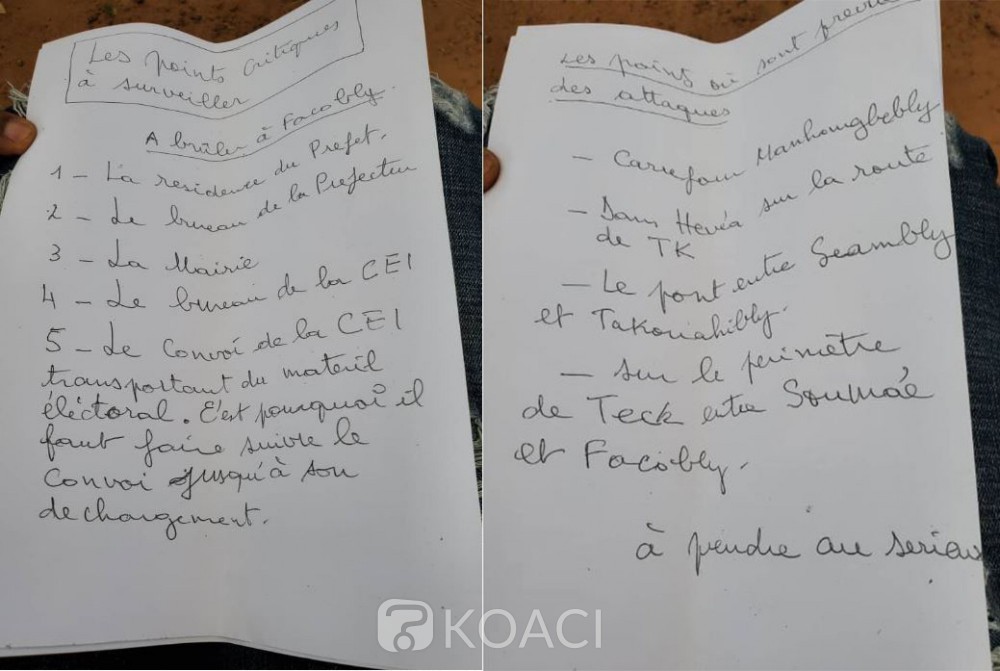 Les points critiques
à surveiller
A brûler à Facobly.
1 - La residence du Prefet.
2 - Le bureau de la Prefecture
3 - La Mairie
4 - Le bureau de la CEI
5 - Le Convoi de la CEI
transportant du materiel
éléctoral. C'est pourquoi il
faut faire suivre le
Convoi jusqu'à son
dechargement.
Les points où sont prévus
des attaques
- Carrefour Manhoungbebly
- Dans Hevéa sur la route
de TK
- Le pont entre Seambly
et Takouahibly.
- sur le perimètre
de Teck entre Soumaé
et Facobly.
à prendre au serieux
KOACI